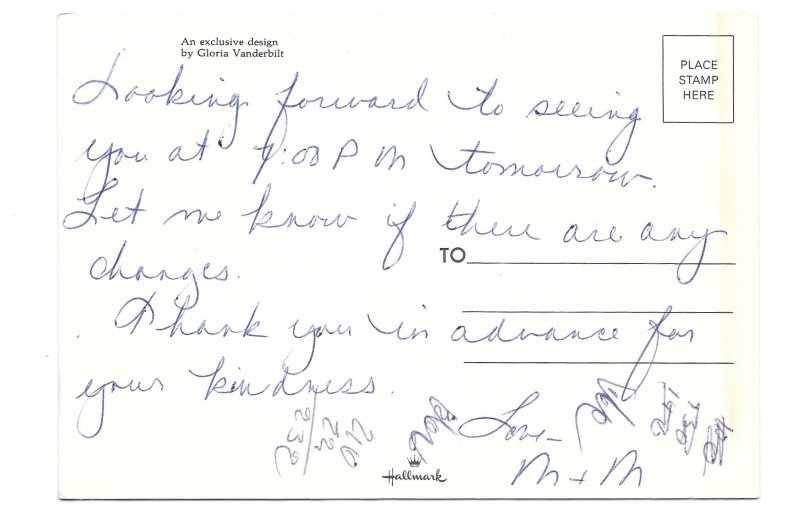 An exclusive design
by Gloria Vanderbilt
PLACE
STAMP
HERE
Looking forward to seeing
you at 7:00 PM tomorrow.
Let me know if there are any
changes.
TO
Thank you in advance for
your kindness.
Love –
M + M
210
22
232
Hallmark